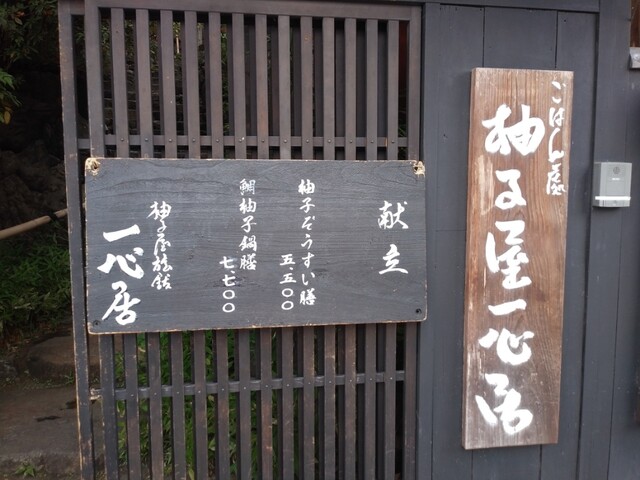 ごはん処
柚子屋一心居
献立
柚子ぞうすい膳
五、五〇〇
鯛柚子鍋膳
七、七〇〇
柚子屋旅館
一心居